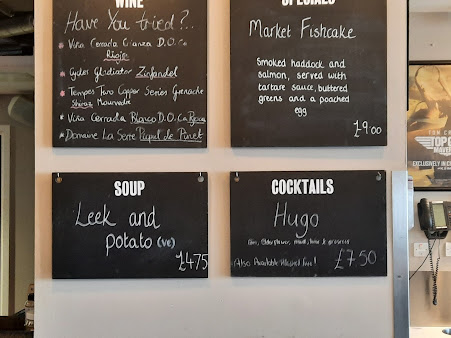 WINE
Have You tried?..
Viña Cerrada Crianza D.O.Ca
Rioja
Gyles Gladiator Zinfandel
Tempus Two Copper Series Grenache
Shiraz Mourvedre
Viña Cerrada Blanco D.O.Ca Rioja
Domaine La Serre Picpoul de Pinet
SPECIALS
Market Fishcake
Smoked haddock and
salmon, served with
tartare sauce, buttered
greens and a poached
egg
£9.00
SOUP
Leek and
potato (ve)
£4.75
COCKTAILS
Hugo
Elderflower, mint, lime & prosecco
(Also Available Alcohol Free!
£7.50
TOM CR
TOP G
MAVER
EXCLUSIVELY IN C